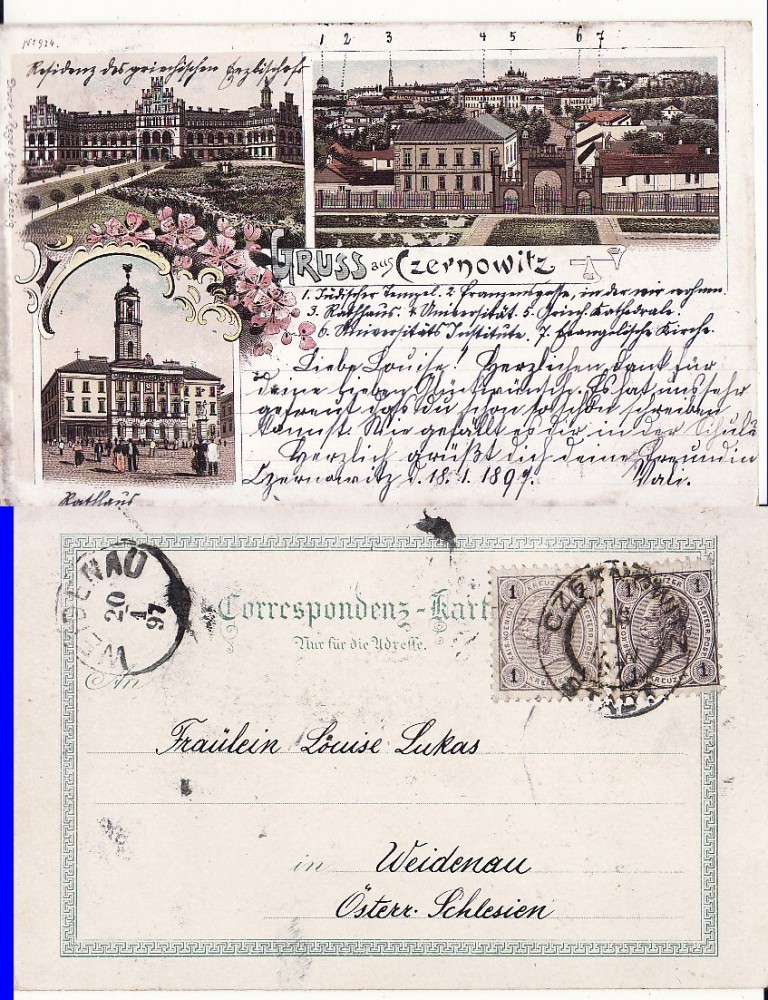 No 924.
1 2 3 4 5 6 7
Residenz des griechischen Erzbischofs
Gruss aus Czernowitz
1. Jüdischer Tempel. 2. Franzensgasse, in der wir wohnen.
3. Rathhaus. 4. Universität. 5. Griech. Kathedrale.
6. Universitäts Institute. 7. Evangelische Kirche.
Liebe Louise! Herzlichen Dank für
deine lieben Glückwünsche. Es hat uns sehr
gefreut das du schon so schön schreiben
kannst. Wie gefällt es dir in der Schule
Herzlich grüßt dich deine Freundin
Czernowitz d. 18. 1. 1897. Vali.
Rathhaus
WEIDENAU
20
1
97
Correspondenz-Karte
Nur für die Adresse.
An
1 KREUZER 1
1 KREUZER 1
CZERNOWITZ
Fräulein Louise Lukas
in Weidenau
Österr. Schlesien